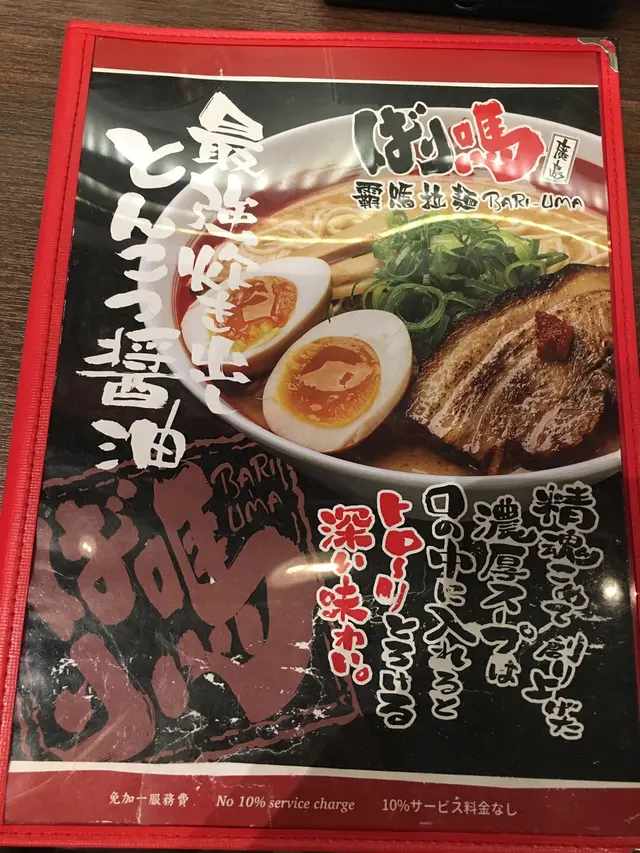 最強炊き出し
とんこつ醤油
ばり嗎
廣島
霸嗎拉麵 BARI-UMA
BARI
UMA
ばり嗎
精魂こめて創り上げた
濃厚スープは
口の中に入れると
トロ〜りとろける
深い味わい。
免加一服務費 No 10% service charge 10%サービス料金なし